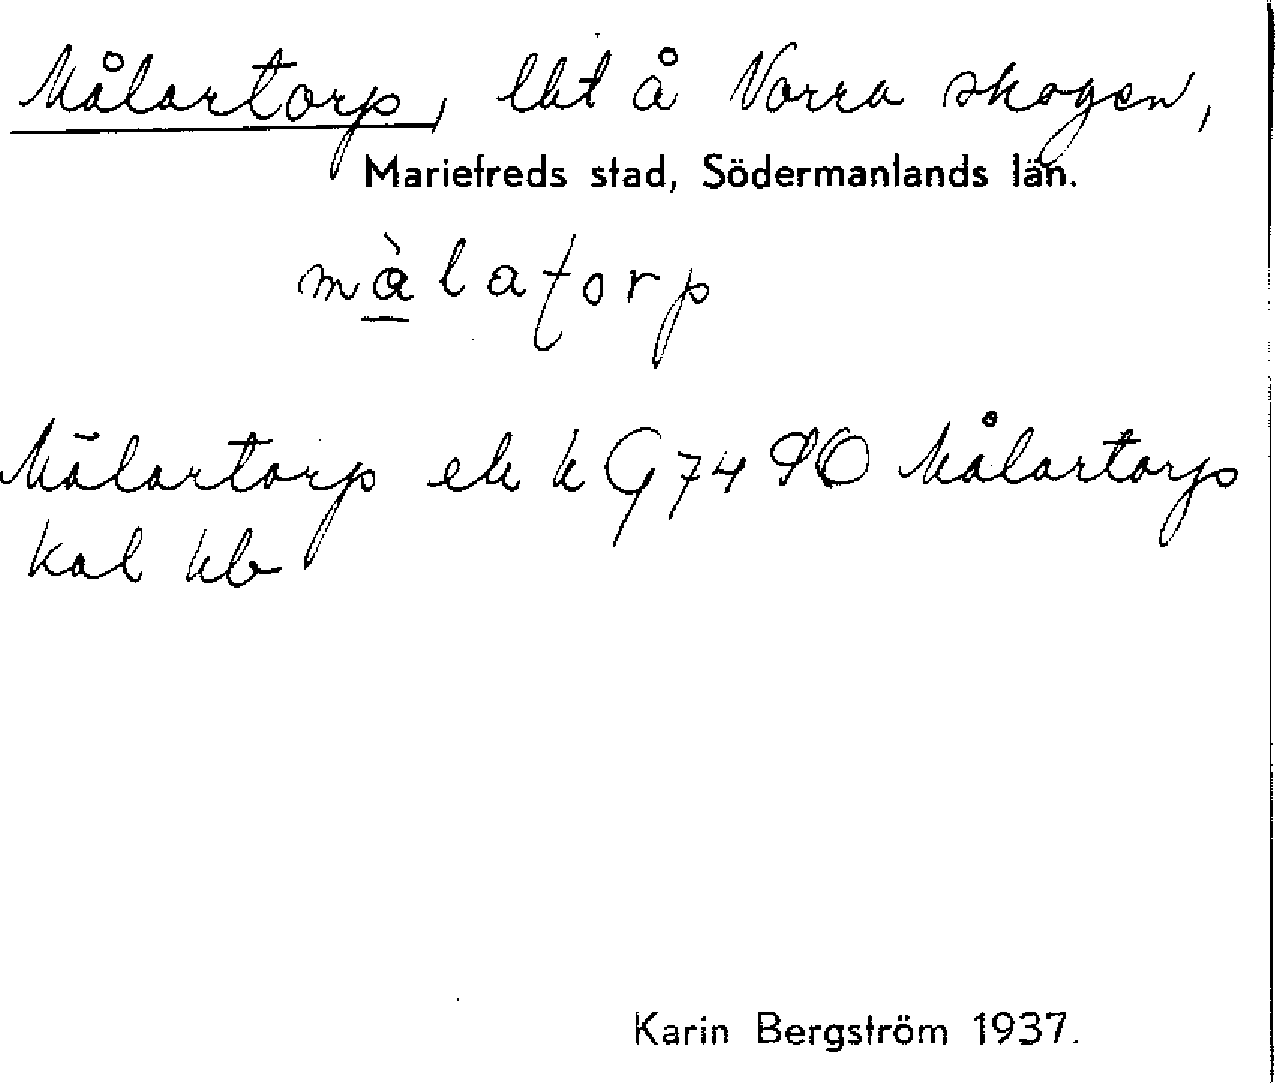 Målartorp, lht å Norra skogen,
Mariefreds stad, Södermanlands län.
màlatorp
Mälartorp ek k G74 90 Målartorp
kal kb
Karin Bergström 1937.